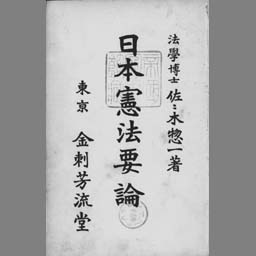 法學博士 佐々木惣一著
日本憲法要論
東京 金刺芳流堂